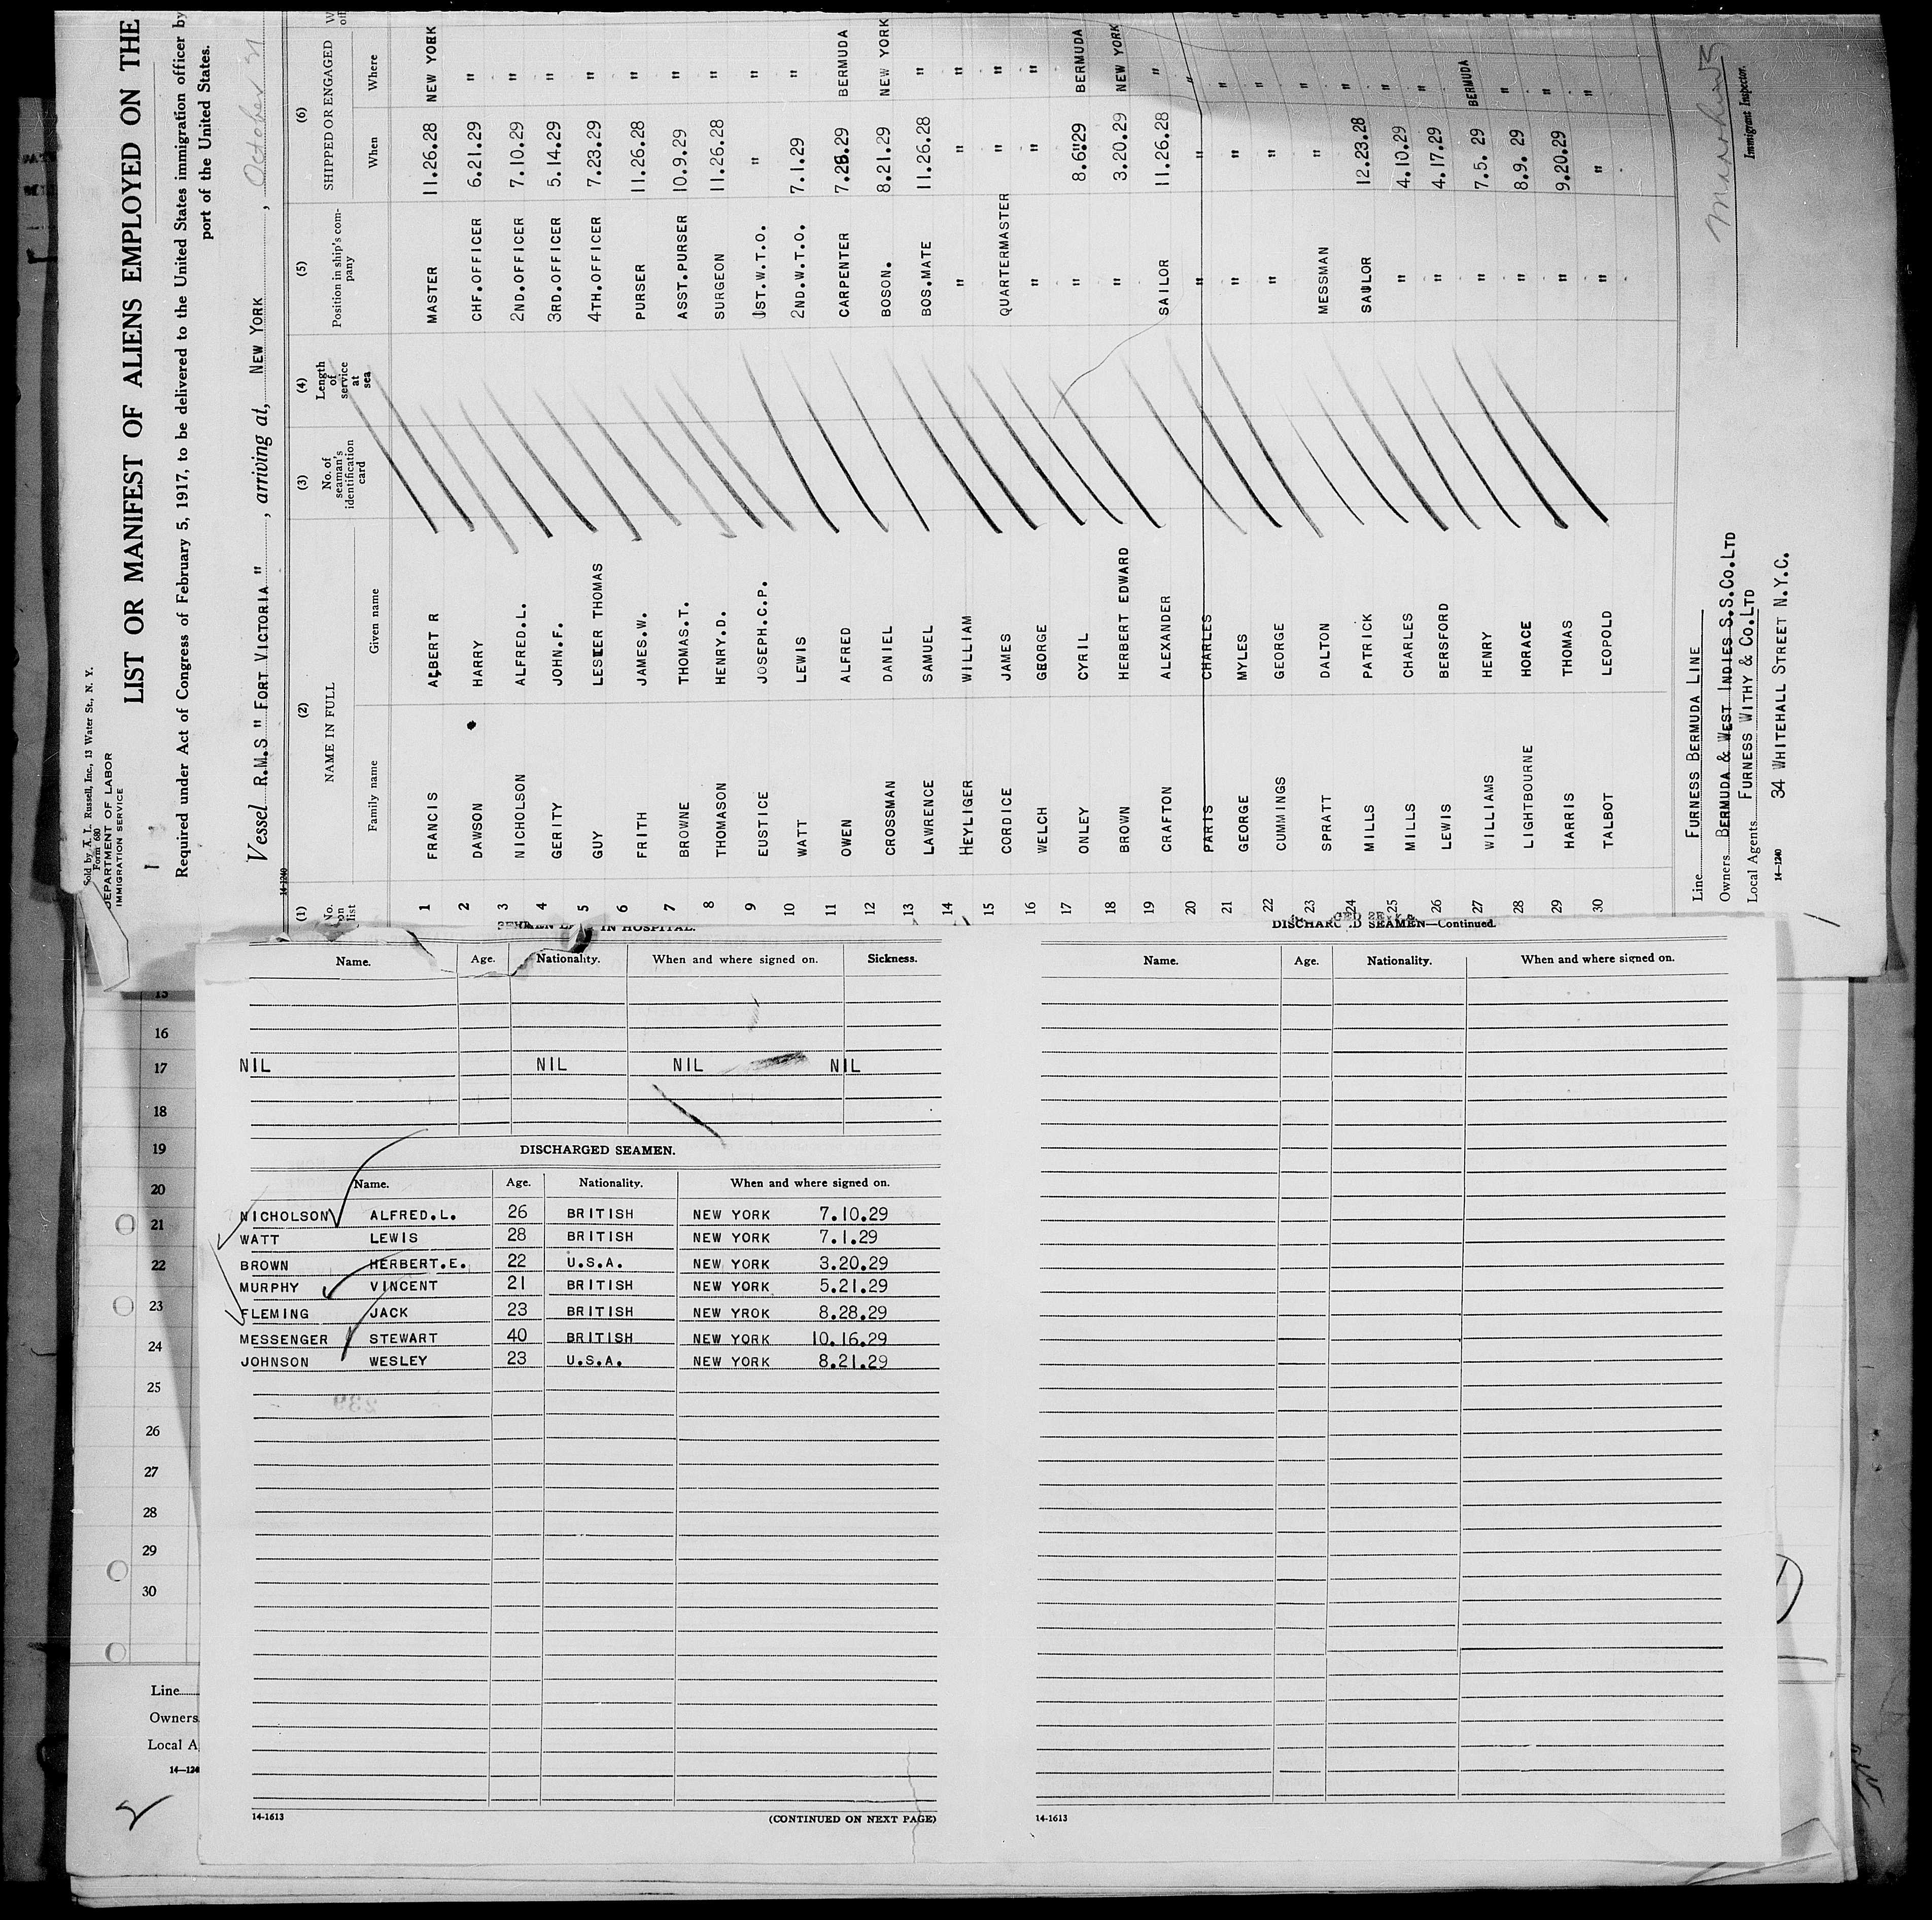 Sold by A. L. Russell, Inc., 13 Water St., N. Y.
Form 680
DEPARTMENT OF LABOR
IMMIGRATION SERVICE
1
LIST OR MANIFEST OF ALIENS EMPLOYED ON THE
Required under Act of Congress of February 5, 1917, to be delivered to the United States immigration officer by
port of the United States.
Vessel R.M.S " FORT VICTORIA ", arriving at, NEW YORK, October 21
14-1240
(1) (2) (3) (4) (5) (6)
No. on list NAME IN FULL No. of seaman's identification card Length of service at sea Position in ship's company SHIPPED OR ENGAGED
Family name Given name When Where
1 FRANCIS ALBERT R MASTER 11.26.28 NEW YORK
2 DAWSON HARRY CHF.OFFICER 6.21.29 "
3 NICHOLSON ALFRED.L. 2ND.OFFICER 7.10.29 "
4 GERITY JOHN.F. 3RD.OFFICER 5.14.29 "
5 GUY LESTER THOMAS 4TH.OFFICER 7.23.29 "
6 FRITH JAMES.W. PURSER 11.26.28 "
7 BROWNE THOMAS.T. ASST.PURSER 10.9.29 "
8 THOMASON HENRY.D. SURGEON 11.26.28 "
9 EUSTICE JOSEPH.C.P. 1ST.W.T.O. " "
10 WATT LEWIS 2ND.W.T.O. 7.1.29 "
11 OWEN ALFRED CARPENTER 7.26.29 BERMUDA
12 CROSSMAN DANIEL BOSON. 8.21.29 NEW YORK
13 LAWRENCE SAMUEL BOS.MATE 11.26.28 "
14 HEYLIGER WILLIAM " " "
15 CORDICE JAMES QUARTERMASTER " "
16 WELCH GEORGE " " "
17 ONLEY CYRIL " 8.6.29 BERMUDA
18 BROWN HERBERT EDWARD " 3.20.29 NEW YORK
19 CRAFTON ALEXANDER SAILOR 11.26.28 "
20 PARIS CHARLES " " "
21 GEORGE MYLES " " "
22 CUMMINGS GEORGE " " "
23 SPRATT DALTON MESSMAN " "
24 MILLS PATRICK SAULOR 12.23.28 "
25 MILLS CHARLES " 4.10.29 "
26 LEWIS BERSFORD " 4.17.29 "
27 WILLIAMS HENRY " 7.5.29 BERMUDA
28 LIGHTBOURNE HORACE " 8.9.29 "
29 HARRIS THOMAS " 9.20.29 "
30 TALBOT LEOPOLD " " "
Line FURNESS BERMUDA LINE
Owners BERMUDA & WEST INDIES S.S.CO.LTD
Local Agents FURNESS WITHY & CO.LTD
14-1240 34 WHITEHALL STREET N.Y.C.
Immigrant Inspector.
IN HOSPITAL.
Name. Age. Nationality. When and where signed on. Sickness.
NIL NIL NIL NIL
DISCHARGED SEAMEN.
Name. Age. Nationality. When and where signed on.
NICHOLSON ALFRED.L. 26 BRITISH NEW YORK 7.10.29
WATT LEWIS 28 BRITISH NEW YORK 7.1.29
BROWN HERBERT.E. 22 U.S.A. NEW YORK 3.20.29
MURPHY VINCENT 21 BRITISH NEW YORK 5.21.29
FLEMING JACK 23 BRITISH NEW YROK 8.28.29
MESSENGER STEWART 40 BRITISH NEW YORK 10.16.29
JOHNSON WESLEY 23 U.S.A. NEW YORK 8.21.29
14-1613 (CONTINUED ON NEXT PAGE)
DISCHARGED SEAMEN—Continued.
Name. Age. Nationality. When and where signed on.
14-1613
15
16
17
18
19
20
21
22
23
24
25
26
27
28
29
30
Line
Owners
Local A
14-124
2